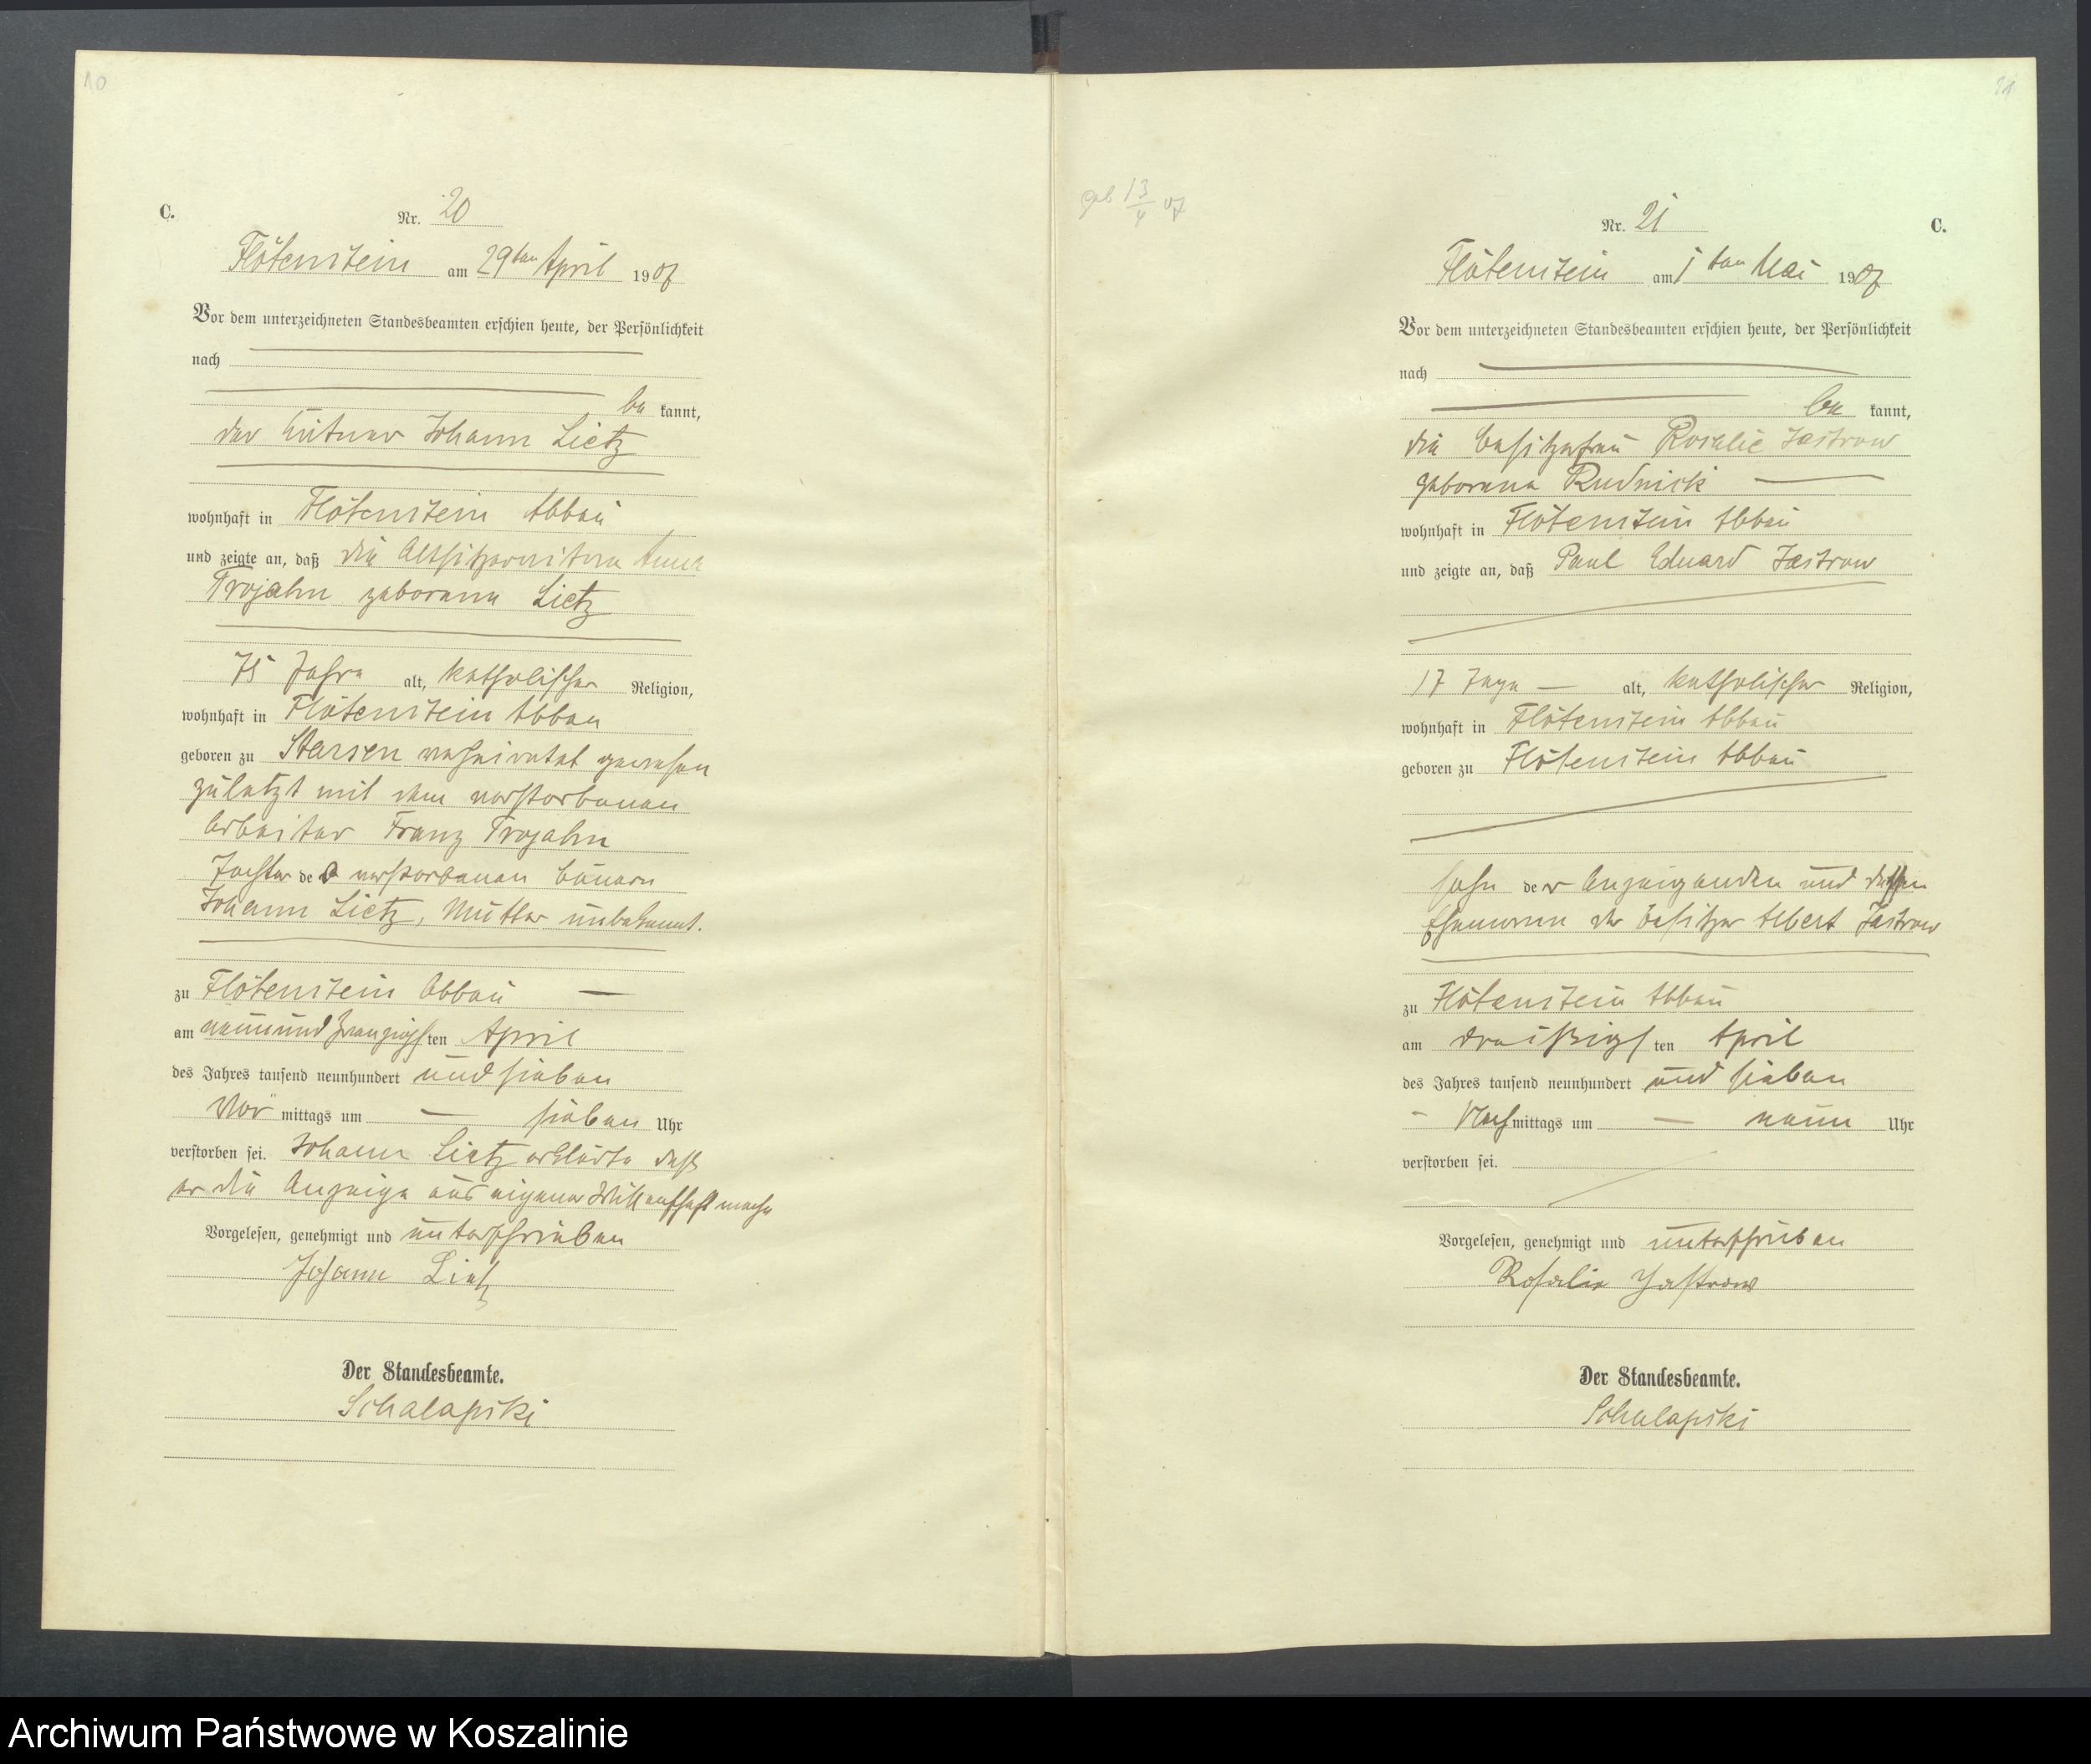 10
C.
Nr. 20
Flötenstein am 29ten April 1907
Vor dem unterzeichneten Standesbeamten erschien heute, der Persönlichkeit
nach
be kannt,
der Eigentümer Johann Lietz
wohnhaft in Flötenstein Abbau
und zeigte an, daß die Altsitzerwitwe Anna
Trojahn geborene Lietz
75 Jahre alt, katholischer Religion,
wohnhaft in Flötenstein Abbau
geboren zu Starsen verheiratet gewesen
zuletzt mit dem verstorbenen
Arbeiter Franz Trojahn
Tochter des verstorbenen Bauern
Johann Lietz, Mutter unbekannt.
zu Flötenstein Abbau
am neunundzwanzigsten April
des Jahres tausend neunhundert und sieben
Vor mittags um sieben Uhr
verstorben sei. Johann Lietz erklärte daß
er die Anzeige aus eigener Wissenschaft mache
Vorgelesen, genehmigt und unterschrieben
Johann Lietz
Der Standesbeamte.
Schalapski
21
geb 13/4 07
Nr. 21
C.
Flötenstein am 1ten Mai 1907
Vor dem unterzeichneten Standesbeamten erschien heute, der Persönlichkeit
nach
be kannt,
die Besitzerfrau Rosalie Jastrow
geborene Rudnick
wohnhaft in Flötenstein Abbau
und zeigte an, daß Paul Eduard Jastrow
17 Tage alt, katholischer Religion,
wohnhaft in Flötenstein Abbau
geboren zu Flötenstein Abbau
Sohn der Anzeigenden und dessen
Ehemann der Besitzer Albert Jastrow
zu Flötenstein Abbau
am dreißigsten April
des Jahres tausend neunhundert und sieben
Nachmittags um neun Uhr
verstorben sei.
Vorgelesen, genehmigt und unterschrieben
Rosalie Jastrow
Der Standesbeamte.
Schalapski
Archiwum Państwowe w Koszalinie